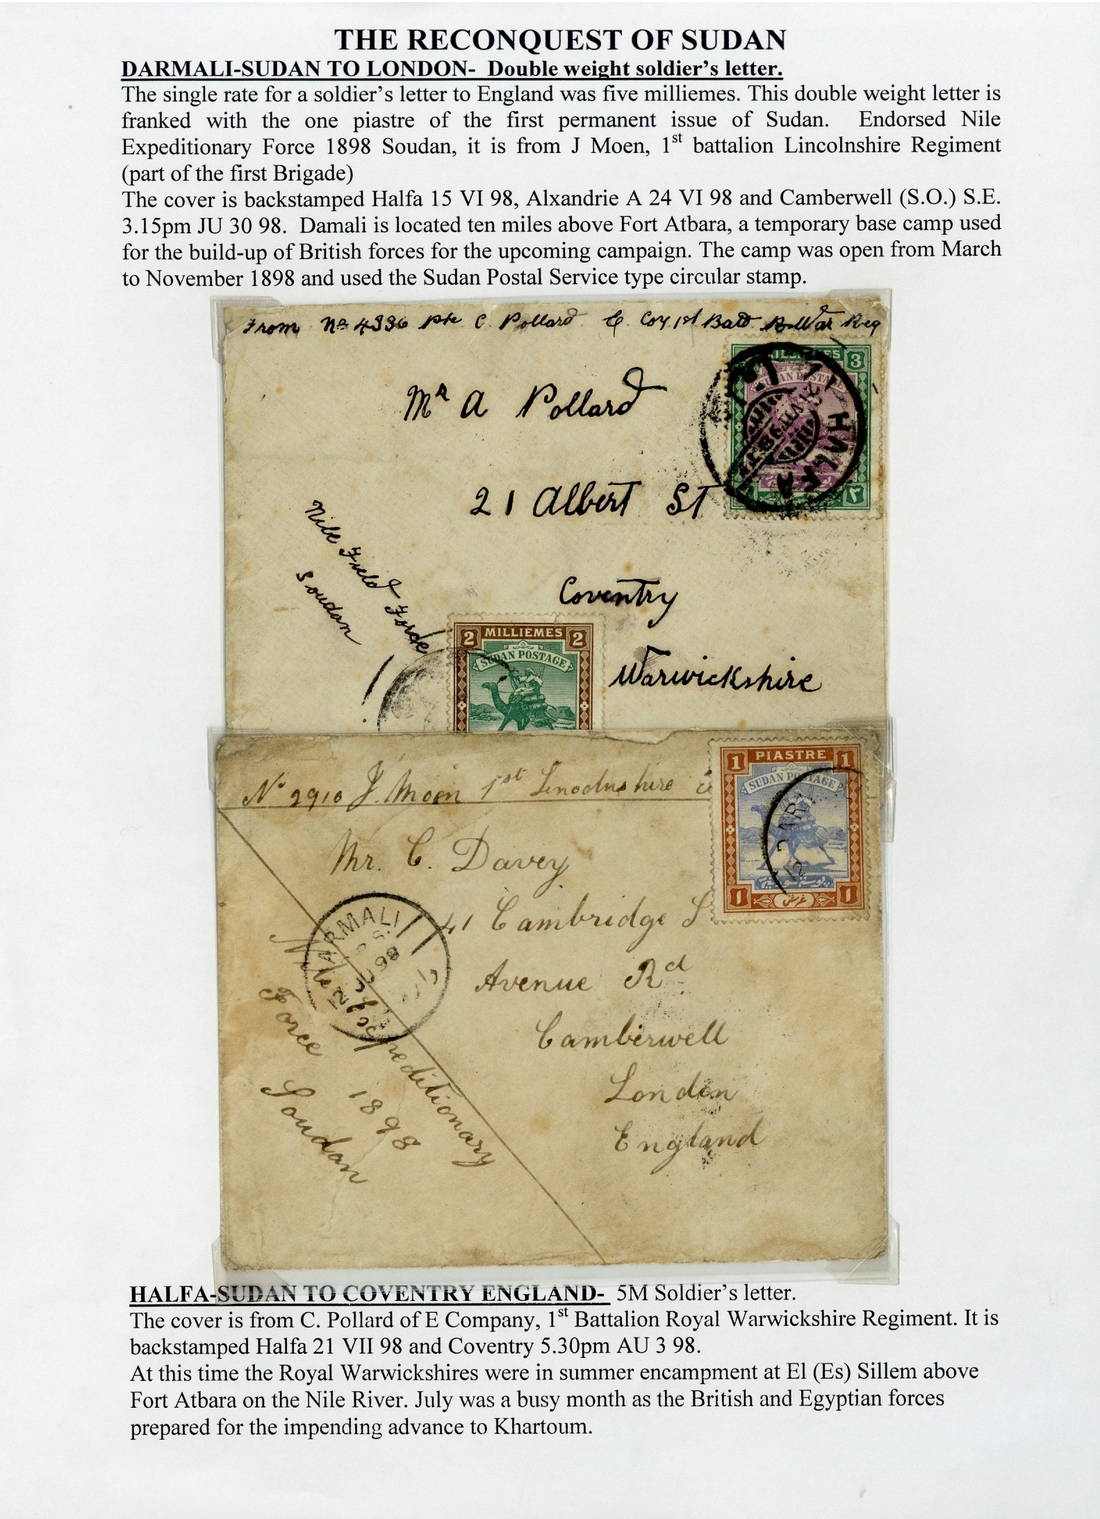 THE RECONQUEST OF SUDAN
DARMALI-SUDAN TO LONDON- Double weight soldier's letter.
The single rate for a soldier's letter to England was five milliemes. This double weight letter is
franked with the one piastre of the first permanent issue of Sudan. Endorsed Nile
Expeditionary Force 1898 Soudan, it is from J Moen, 1st battalion Lincolnshire Regiment
(part of the first Brigade)
The cover is backstamped Halfa 15 VI 98, Alxandrie A 24 VI 98 and Camberwell (S.O.) S.E.
3.15pm JU 30 98. Damali is located ten miles above Fort Atbara, a temporary base camp used
for the build-up of British forces for the upcoming campaign. The camp was open from March
to November 1898 and used the Sudan Postal Service type circular stamp.
From No 4336 Pte C. Pollard E Coy 1st Batt R. War Reg
MILLIEMES 3
HALFA
٣
Mr A Pollard
21 Albert St
Coventry
Warwickshire
Nile Field Force
Soudan
2 MILLIEMES 2
SUDAN POSTAGE
No 2910 J. Moen 1st Lincolnshire
1 PIASTRE 1
SUDAN POSTAGE
1 1
Mr. C. Davey
41 Cambridge
Avenue Rd
Camberwell
London
England
RMALI
Nile Expeditionary
Force 1898
Soudan
HALFA-SUDAN TO COVENTRY ENGLAND- 5M Soldier's letter.
The cover is from C. Pollard of E Company, 1st Battalion Royal Warwickshire Regiment. It is
backstamped Halfa 21 VII 98 and Coventry 5.30pm AU 3 98.
At this time the Royal Warwickshires were in summer encampment at El (Es) Sillem above
Fort Atbara on the Nile River. July was a busy month as the British and Egyptian forces
prepared for the impending advance to Khartoum.